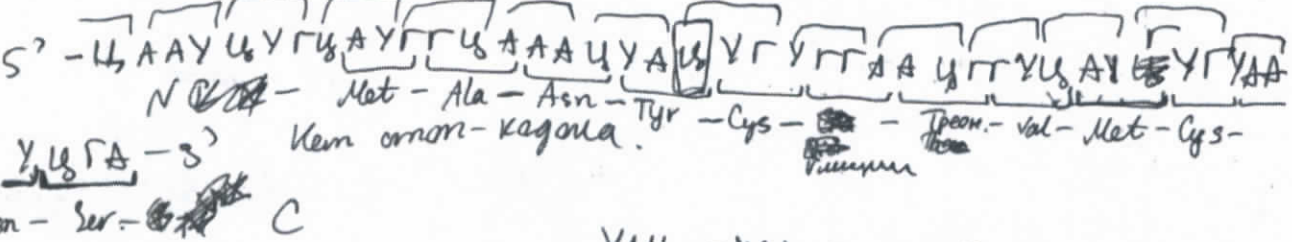 5' - ЦААУЦУГЦАУГГЦАААЦУАЦУГУГГААЦГГУЦАУГУГУАА
N - Met - Ala - Asn - Tyr - Cys - - Треон. - Val - Met - Cys -
Нет стоп-кодона. Глицин
УЦГА - 3'
n - Ser - C